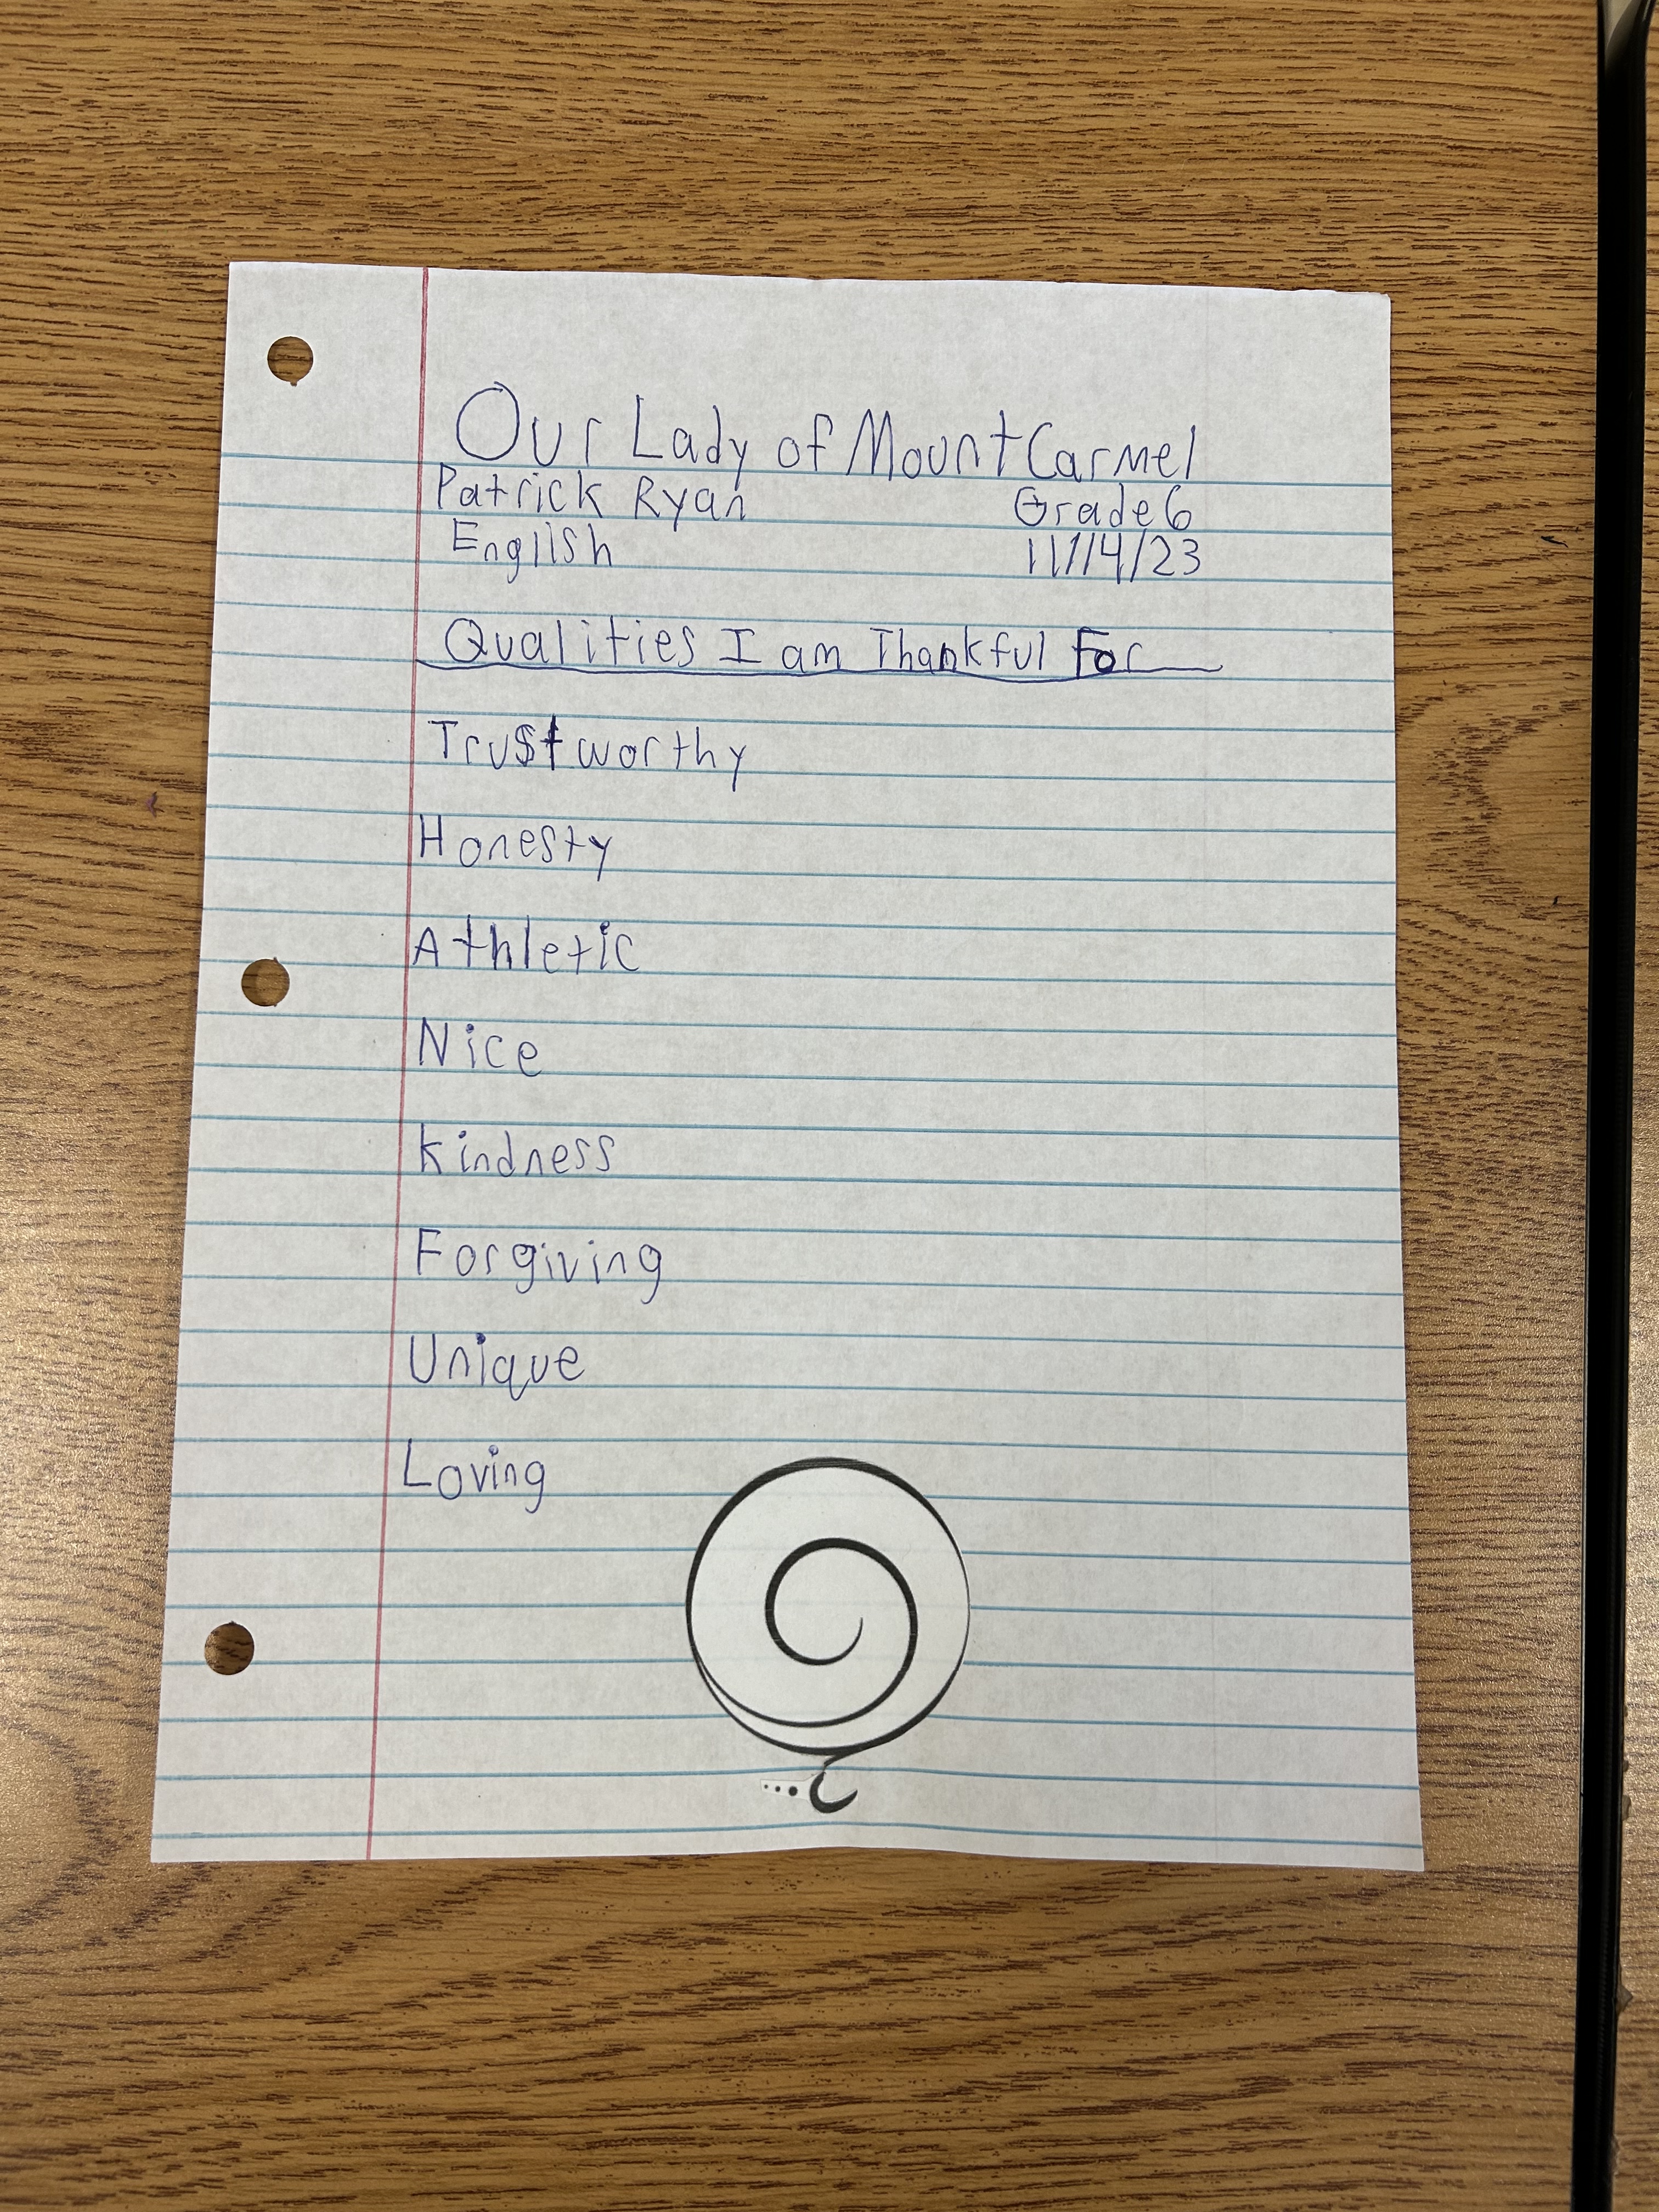 Our Lady of Mount Carmel
Patrick Ryan Grade 6
English 11/14/23
Qualities I am Thankful For
Trustworthy
Honesty
Athletic
Nice
Kindness
Forgiving
Unique
Loving